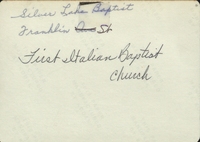 Silver Lake Baptist
Franklin St
First Italian Baptist
Church